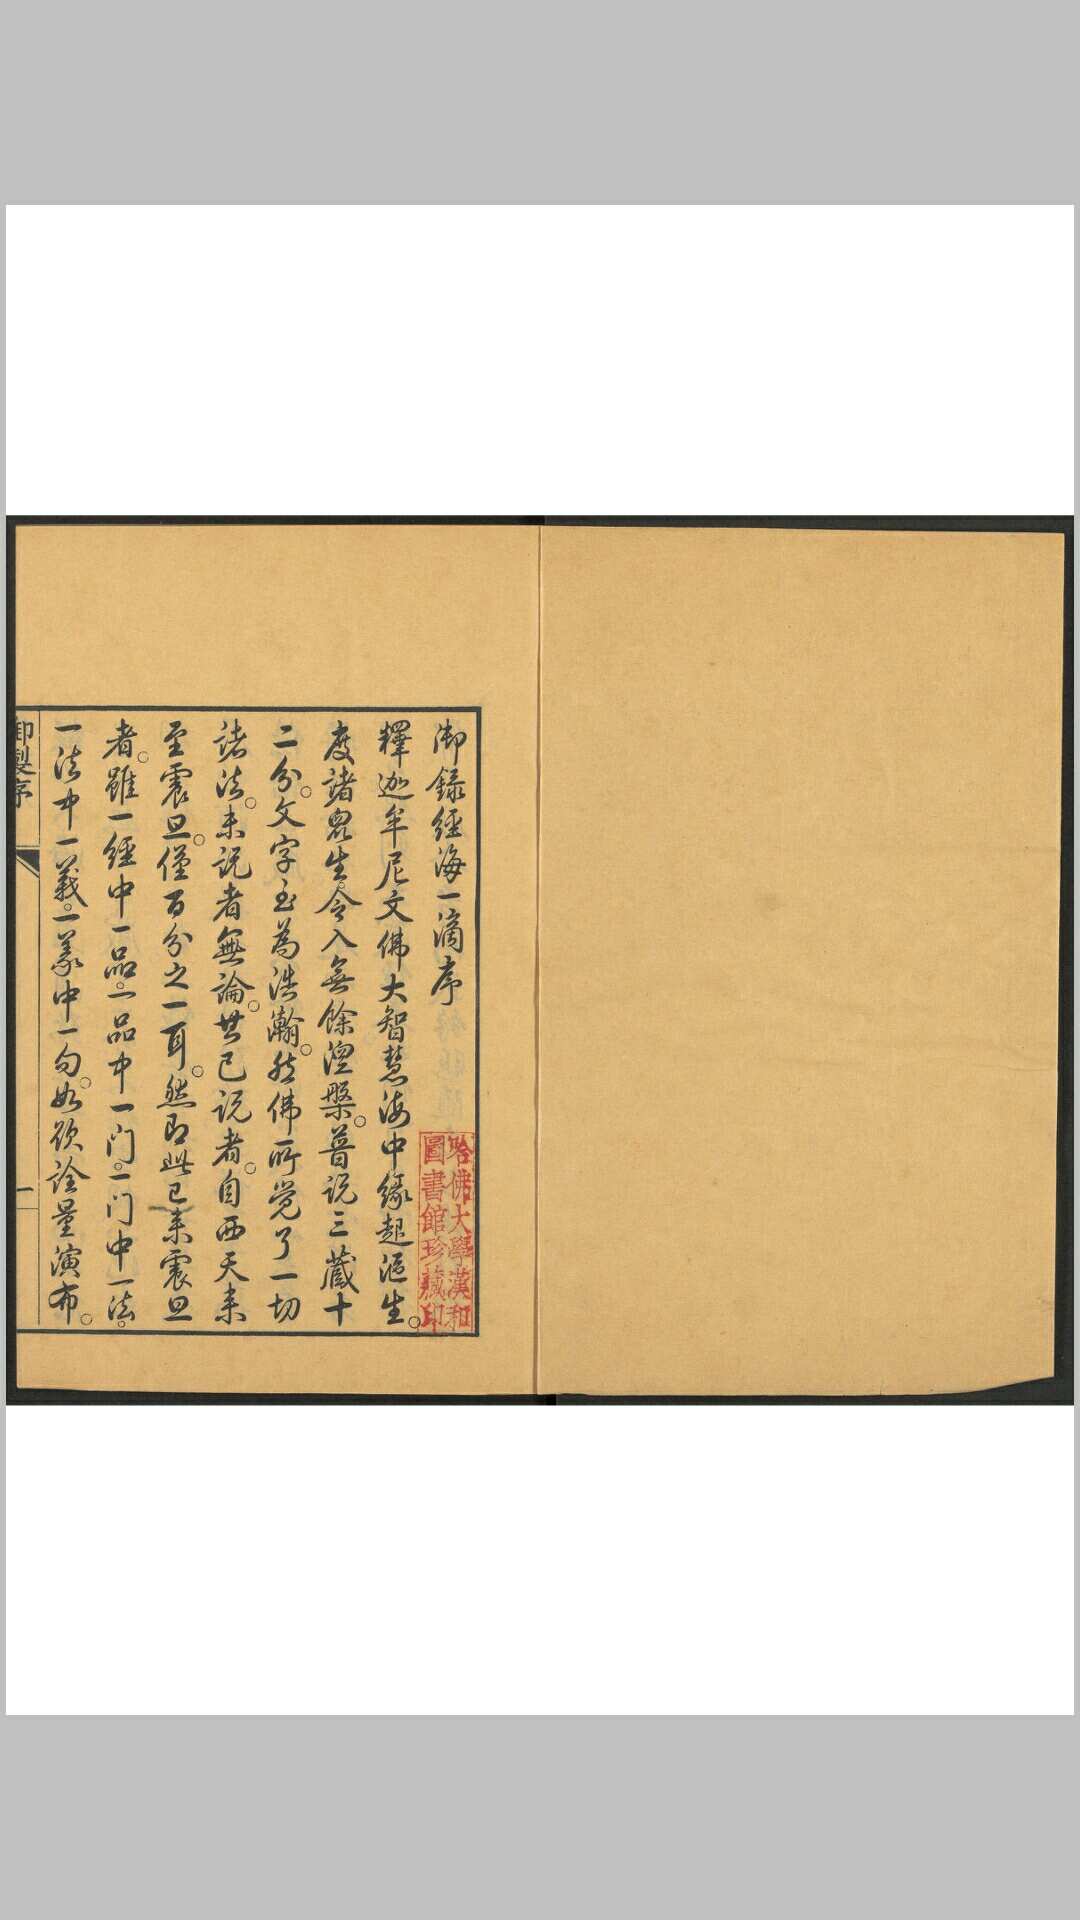 御錄經海一滴序
釋迦牟尼文佛大智慧海中緣起漚生。
度諸眾生。令入無餘涅槃。普說三藏十
二分。文字至為浩瀚。然佛所覺了一切
諸法。未說者無論。其已說者。自西天來
至震旦。僅百分之一耳。然即此已來震旦
者。雖一經中一品。一品中一门。一门中一法。
一法中一義。一義中一句。如欲詮量演布。
御製序
一
哈佛大學漢和
圖書館珍藏印